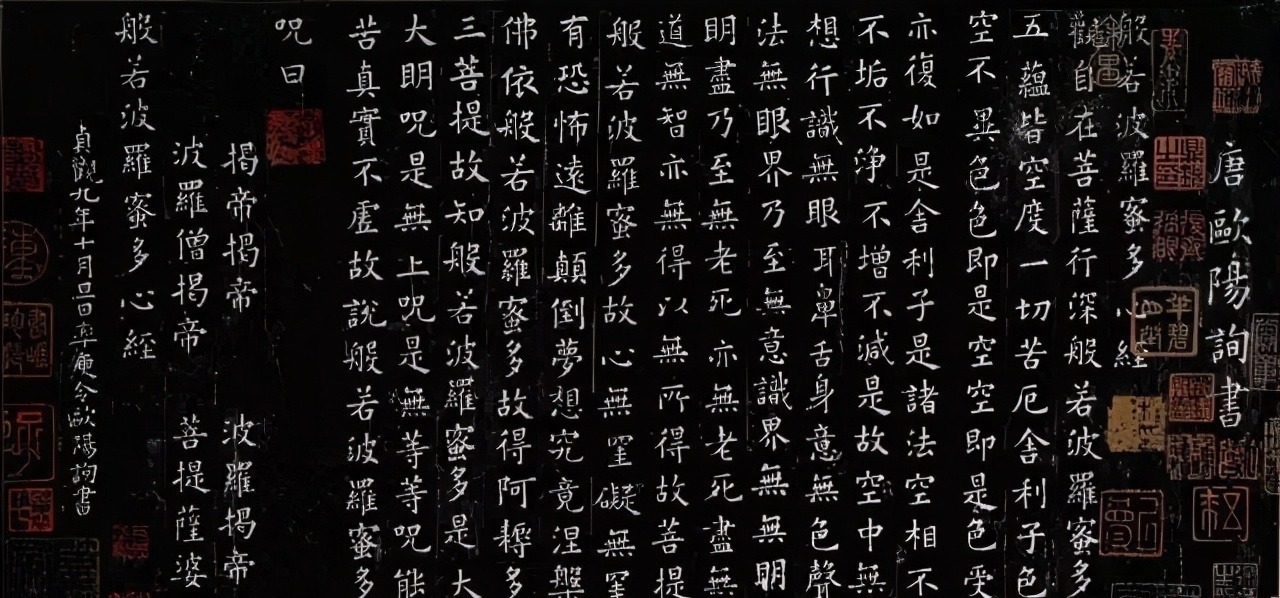 唐歐陽詢書
般若波羅蜜多心經
觀自在菩薩行深般若波羅蜜多
五蘊皆空度一切苦厄舍利子色
空不異色色即是空空即是色受
亦復如是舍利子是諸法空相不
不垢不淨不增不減是故空中無
想行識無眼耳鼻舌身意無色聲
法無眼界乃至無意識界無無明
明盡乃至無老死亦無老死盡無
道無智亦無得以無所得故菩提
般若波羅蜜多故心無罣礙無罣
有恐怖遠離顛倒夢想究竟涅槃
佛依般若波羅蜜多故得阿耨多
三菩提故知般若波羅蜜多是大
大明呪是無上呪是無等等呪能
苦真實不虛故說般若波羅蜜多
呪曰
揭帝揭帝 波羅揭帝
波羅僧揭帝 菩提薩婆
般若波羅蜜多心經
貞觀九年十月旦日率更令歐陽詢書